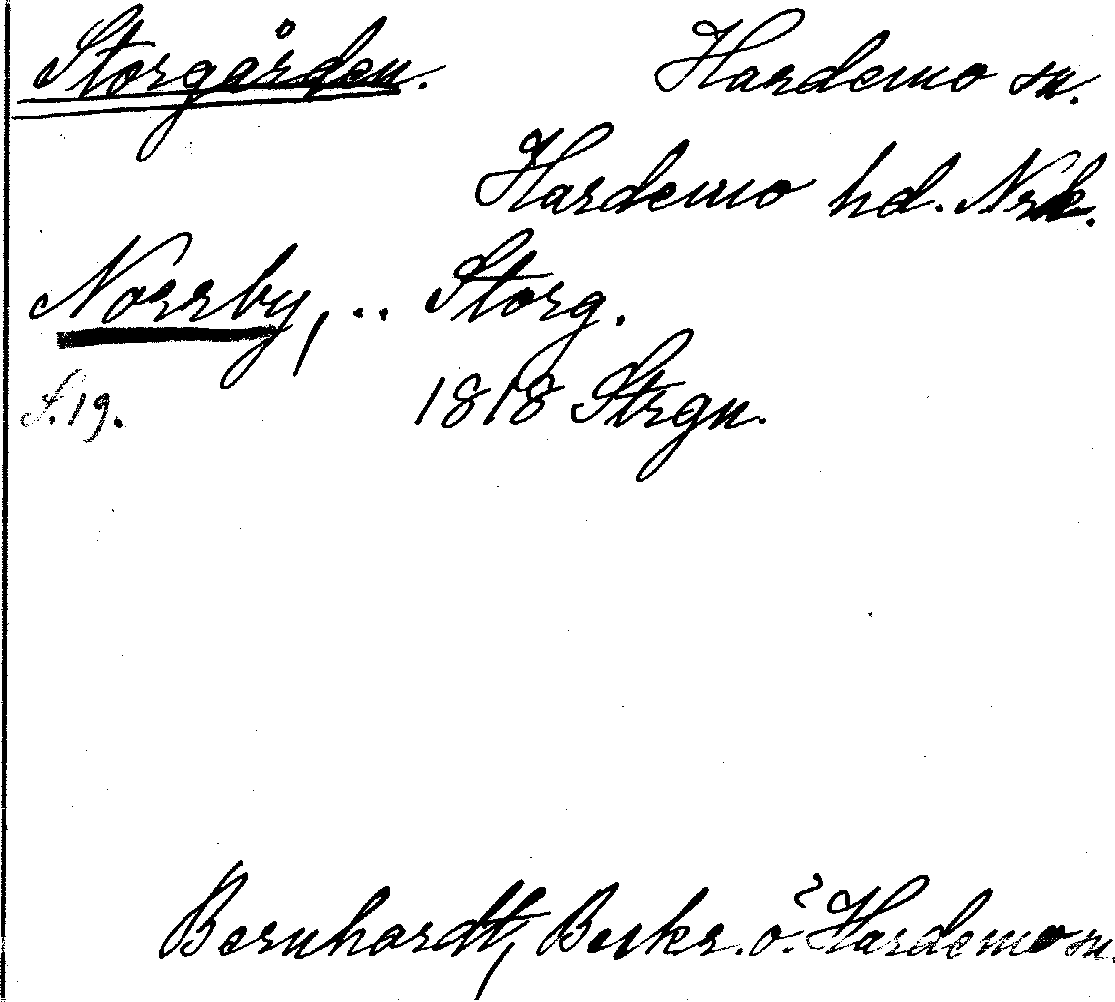 Storgården. Hardemo sn.
Hardemo hd. Nrk.
Norrby, .. Storg.
S. 19. 1818 Strgn.
Bernhardt, Beskr. ö. Hardemo sn.